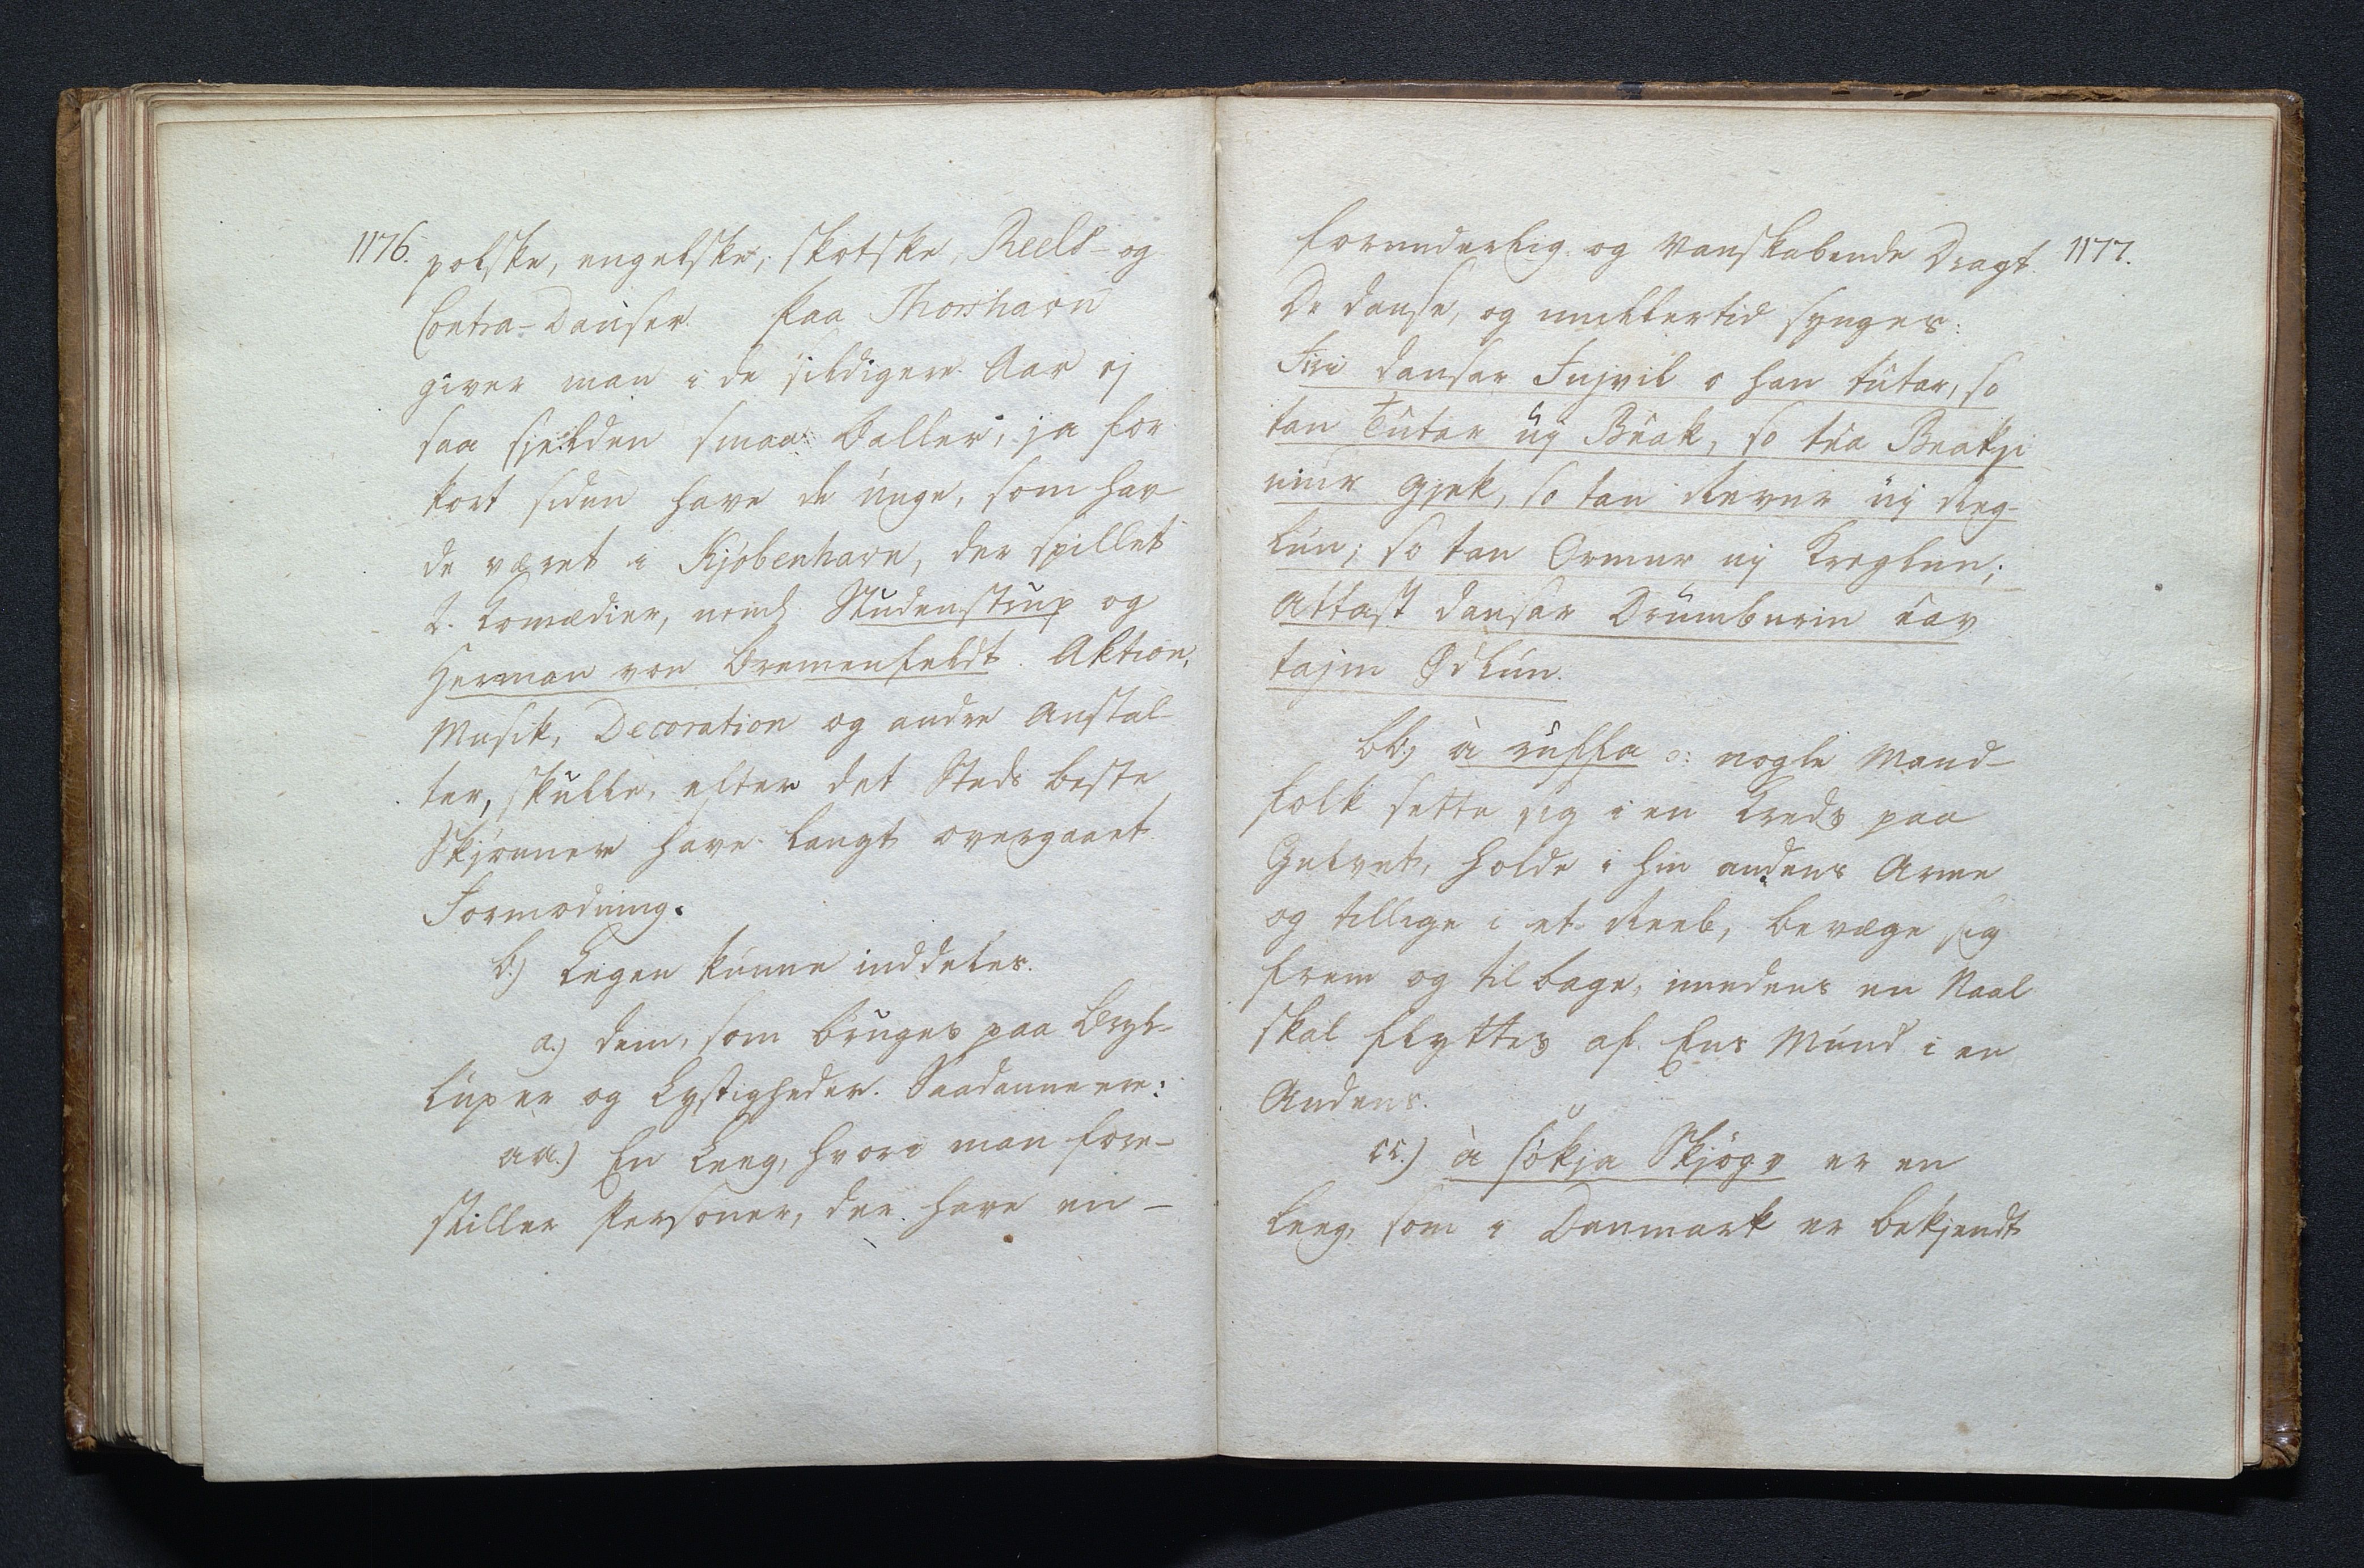 1176.
polske, engelske, skotske, Reels- og
Contra-Danser. Paa Thorshavn
giver man i de sildigere Aar ej
saa sjelden smaa Baller, ja for
kort siden have de unge, som hav-
de været i Kjøbenhavn, der spillet
2. Comædier, neml: Studenstrup og
Herman von Bremenfeldt. Aktion,
Musik, Decoration og andre Anstal
ter, skulle, efter det Steds beste
Skjønnere have langt overgaaet
Formodning.
b.) Legen kunne inddeles.
a.) dem, som bruges paa Bryl-
luper og Lystigheder. Saadanne ere:
aa.) En Leeg, hvori man fore-
stiller Personer, der have en -
1177.
forunderlig og vanskabende Dragt.
De danse, og imillertid synges:
Firi dansar Injvil o han tutar, so
tan Tutar uj Bråk, so tea Breakji
min Gjek, so tan Revur uj Reg-
lun; so tan Ormur uj Kreglun;
attast dansar Drumburin eav
tajm Ødlun.
bb.) à ruffa ɔ: nogle Mand-
folk sette sig i en Kreds paa
Gulvet, holde i hin andens Arme
og tillige i et Reeb, bevæge sig
frem og tilbage, imedens en Naal
skal flyttes af Ens Mund i en
Andens.
cc.) à søkja Skjøgv er en
Leeg, som i Danmark er bekjendt